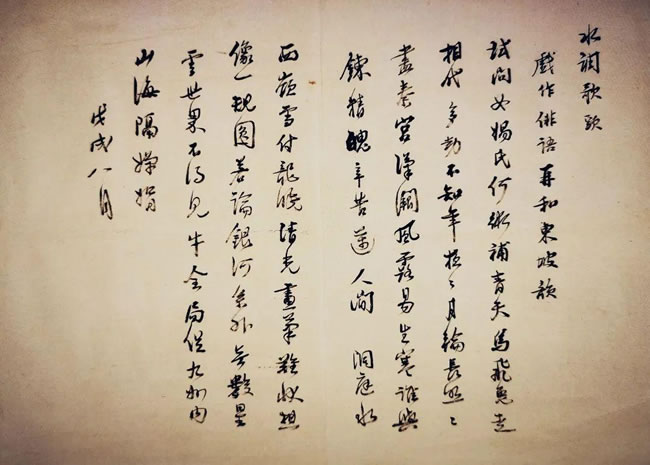 水調歌頭
戲作俳語 再和東坡韻
試問女媧氏何術補青天烏飛兔走
相代多劫不知年月輪長照
盡秦宮漢闕風露易生寒誰與
鍊精魄辛苦還人間 洞庭水
西嶺雪付龍清光畫筆難狀想
像一規圓若論銀河系外無數星
雲世界不得見牛全局促九州內
山海隔嬋娟
戊戌八月